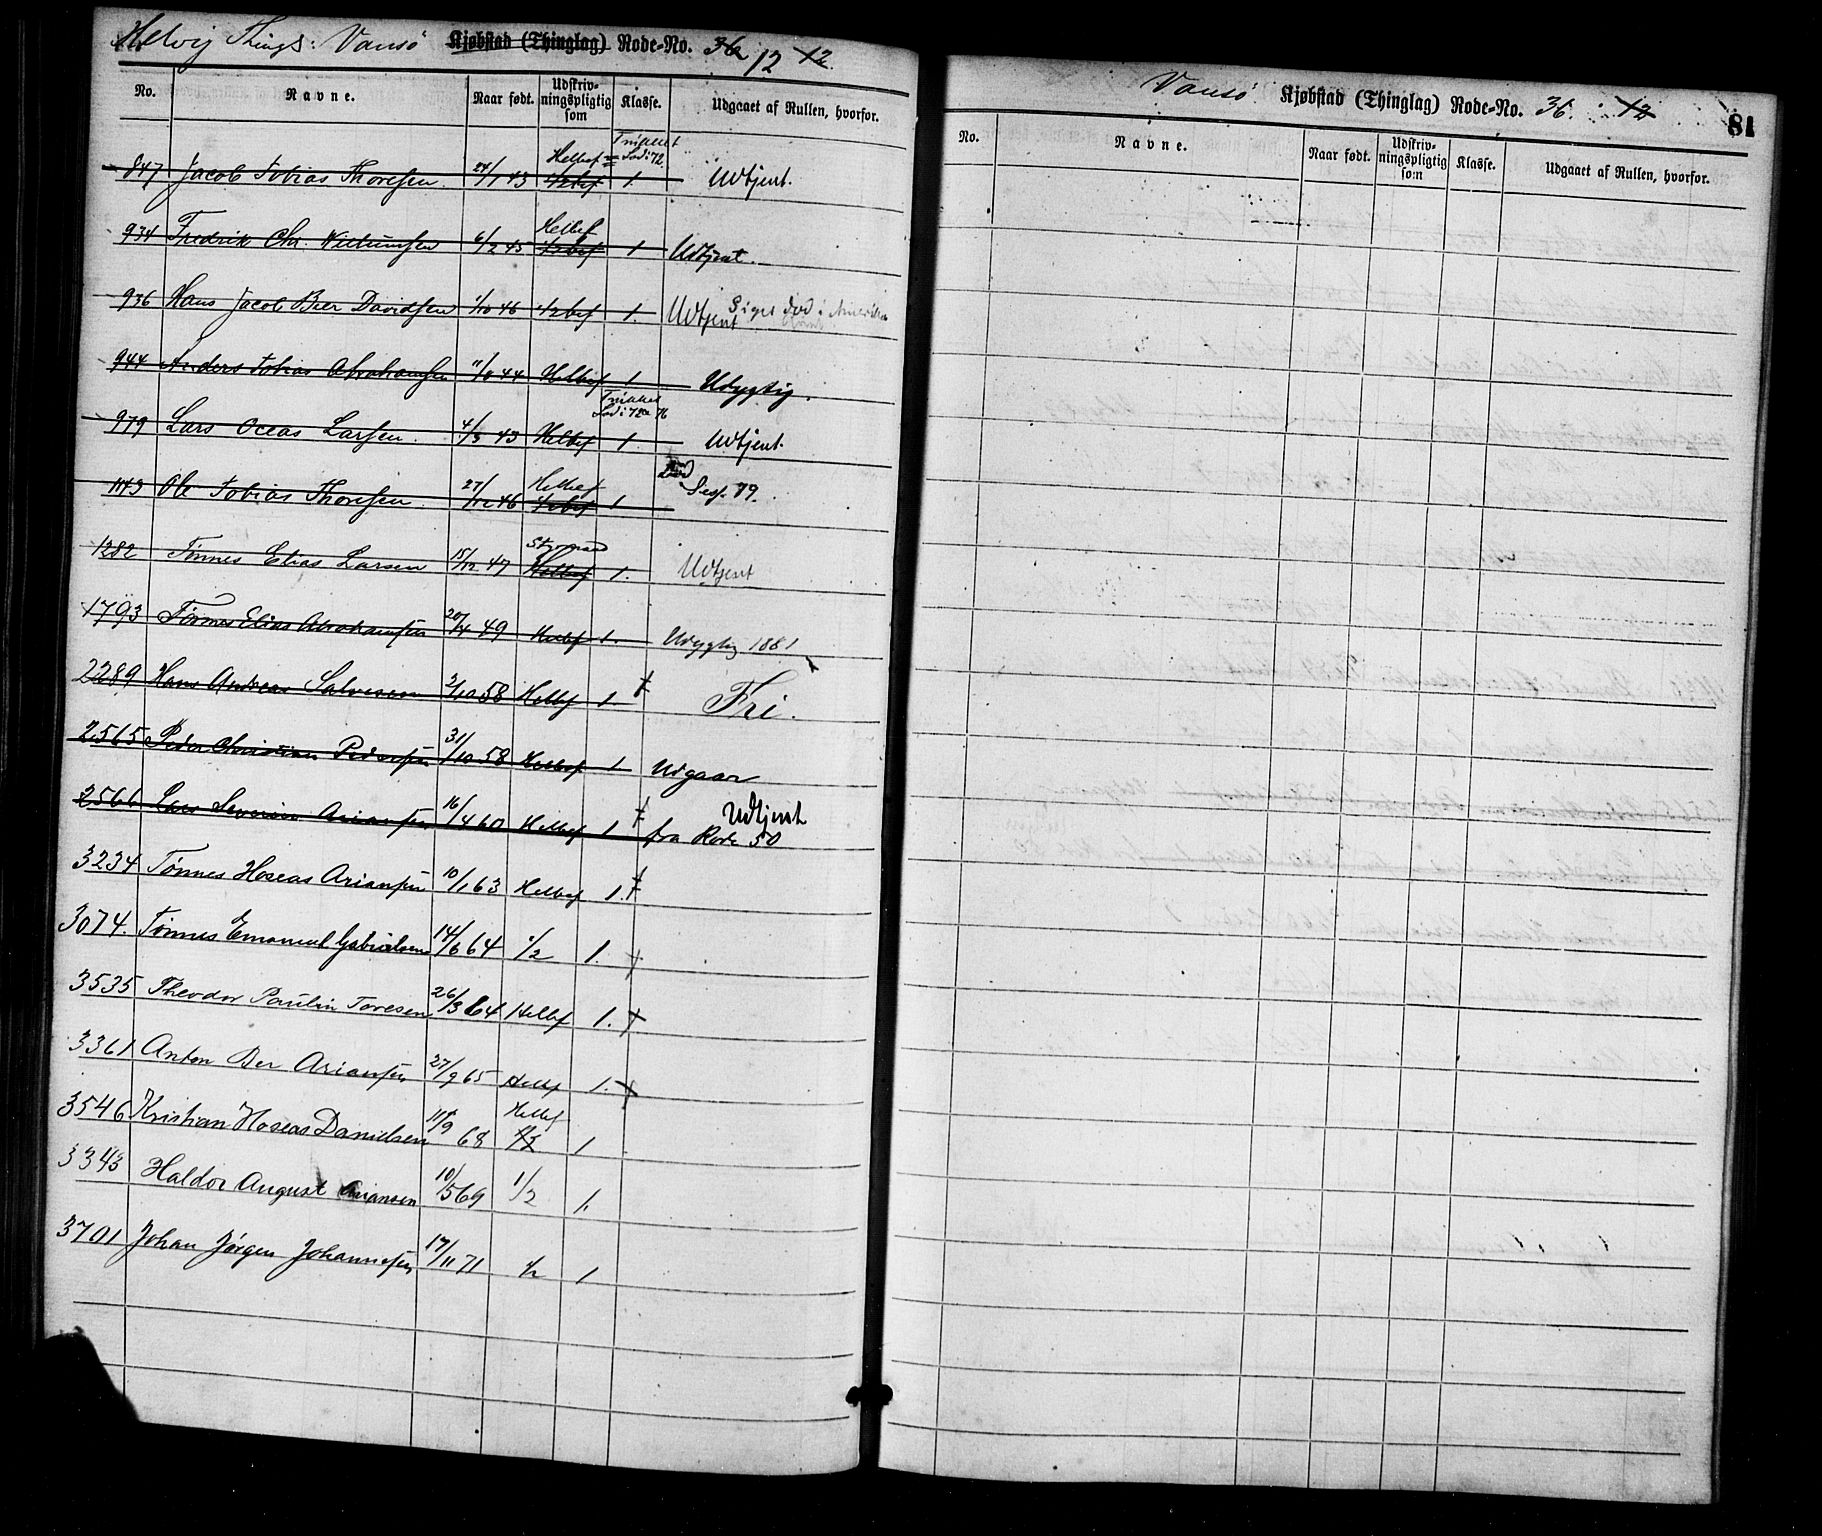 Helvig Things: Vansø Kjøbstad (Thinglag) Rode-No. 36 12 12
No. Navne. Naar født. Udskrivningspligtig som Klasse. Udgaaet af Rullen, hvorfor.
847 Jacob Tobias Thoresen 24/1 43 Helbef 1/2bef 1. Trukket Lod i 72. Udtjent.
934 Fredrik Chr. 6/2 45 Helbef 1/2bef 1 Udtjent.
936 Hans Jacob Beer Davidsen 1/10 46 1/2bef 1. Udtjent Siges død i Amerika
944 Anders Tobias Abrahamsen 11/8 44 Helbef 1 Udygtig.
979 Lars Oceas Larsen. 4/3 43 Helbef 1. Trukket Lod i 72 76 Udtjent.
1143 Ole Tobias Thoresen 27/12 46 Helbef 1/2bef 1 Død Sess. 79.
1282 Tønnes Elias Larsen 15/12 47 Styrmand Helbef 1. Udtjent
1793 Tønnes Elias Abrahamsen 20/4 49 Helbef 1. Udygtig 1881
2289 Hans Andreas Salvesen 2/10 58 Helbef 1. Fri.
2565 Peder Christian Pedersen 31/10 58 Helbef 1 Udgaar
2566 Lars Severin Ariansen 16/4 60 Helbef 1 Udtjent fra Rode 50
3234 Tønnes Hoseas Ariansen 10/1 63 Helbef 1.
3074. Tønnes Emanuel Gabrielsen 14/6 64 1/2 1.
3535 Theodor Paulin Toresen 26/3 64 Helbf 1.
3361 Anton Ber Ariansen 27/9 65 Helbf 1.
3546 Kristian Hoseas Danielsen 11/9 68 Helbef 1/2 1
3343 Haldor August Ariansen 10/5 69 1/2 1.
3701 Johan Jørgen Johannesen 17/11 71 1/2 1
Vansø Kjøbstad (Thinglag) Rode-No. 36. 12
81
No. Navne. Naar født. Udskrivningspligtig som Klasse. Udgaaet af Rullen, hvorfor.